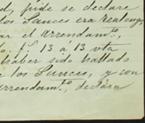 d, pide se declare
los Sauces era realenga
ar el arrendam.to
to, f.s 13 á 13 vta
haber sido hallado
e los Sauces, y con
arrendam.to, declara